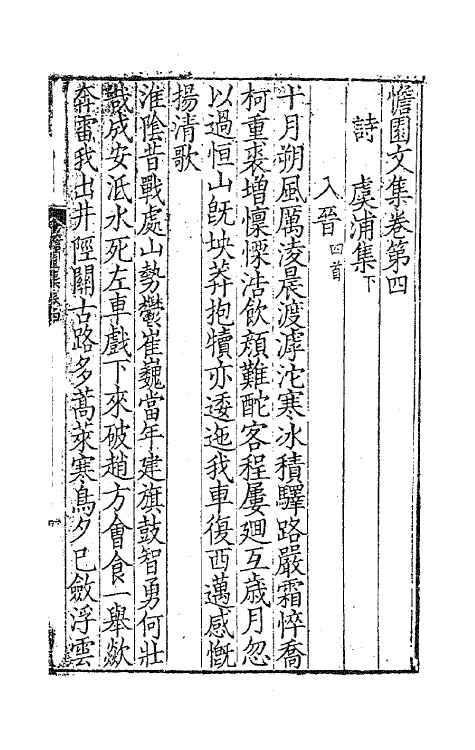 憺園文集卷第四
詩　虞浦集下
入晉四首
十月朔風厲淩晨渡滹沱寒冰積驛路嚴霜悴喬
柯重裘增懍慄沽飲顏難酡客程屢廻互歳月忽
以過恒山既坱莽抱犢亦逶迤我車復西邁感慨
揚清歌
淮陰昔戰處山勢鬱崔巍當年建旗鼓智勇何壯
哉成安泜水死左車戲下來破趙方會食一舉歘
奔雷我出井陘關古路多蒿萊寒鳥夕已斂浮雲